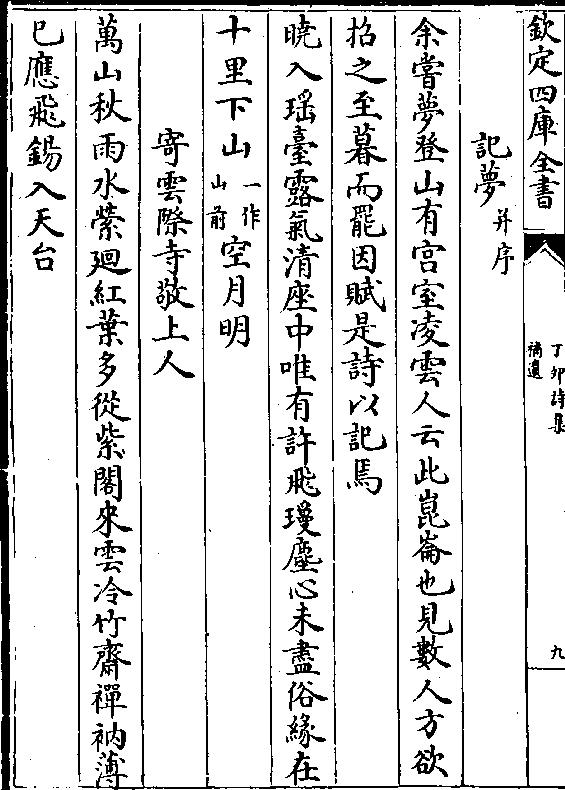 欽定四庫全書
丁卯詩集
補遺
九
記夢并序
余嘗夢登山有宫室凌雲人云此崑崙也見數人方欲
招之至暮而罷因賦是詩以記焉
曉入瑶臺露氣清座中唯有許飛瓊塵心未盡俗緣在
十里下山一作山前空月明
寄雲際寺敬上人
萬山秋雨水縈廻紅葉多從紫閣來雲冷竹齋禪衲薄
已應飛錫入天台